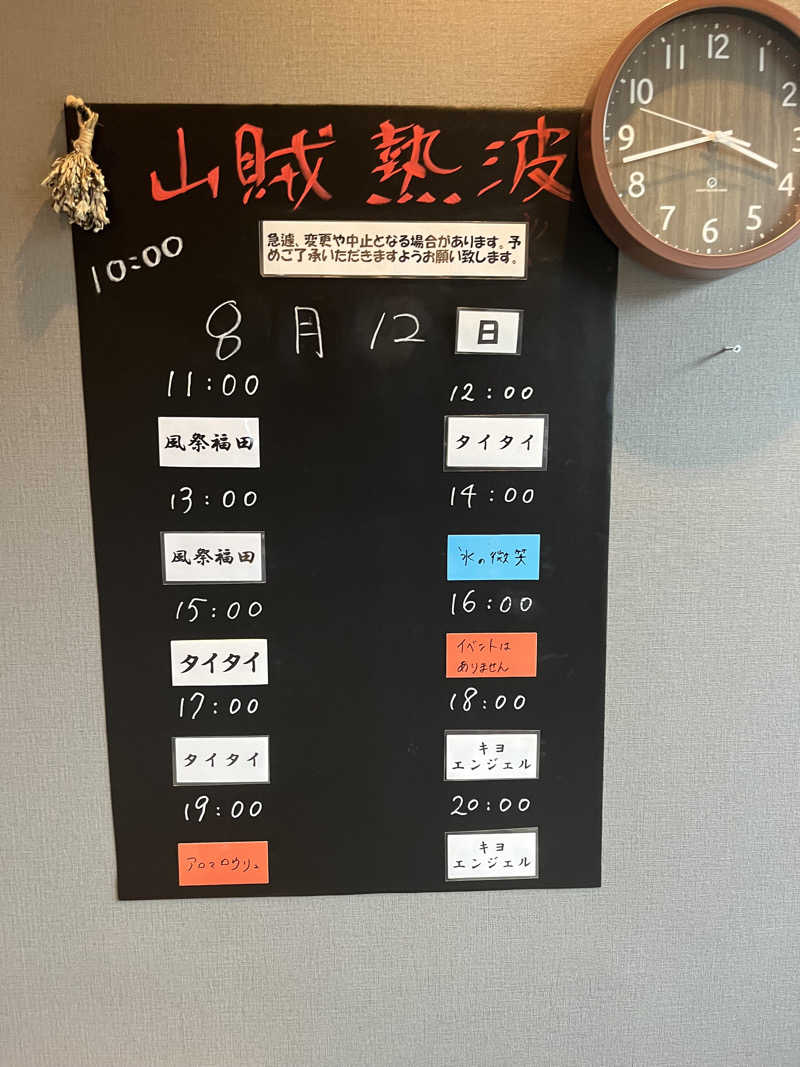 山賊熱波
急遽、変更や中止となる場合があります。予
めご了承いただきますようお願い致します。
10:00
8月12日
11:00
12:00
風祭福田
タイタイ
13:00
14:00
風祭福田
氷の微笑
15:00
16:00
タイタイ
イベントは
ありません
17:00
18:00
タイタイ
キヨ
エンジェル
19:00
20:00
アロマロウリュ
キヨ
エンジェル
12
1
2
3
4
5
6
7
8
9
10
11